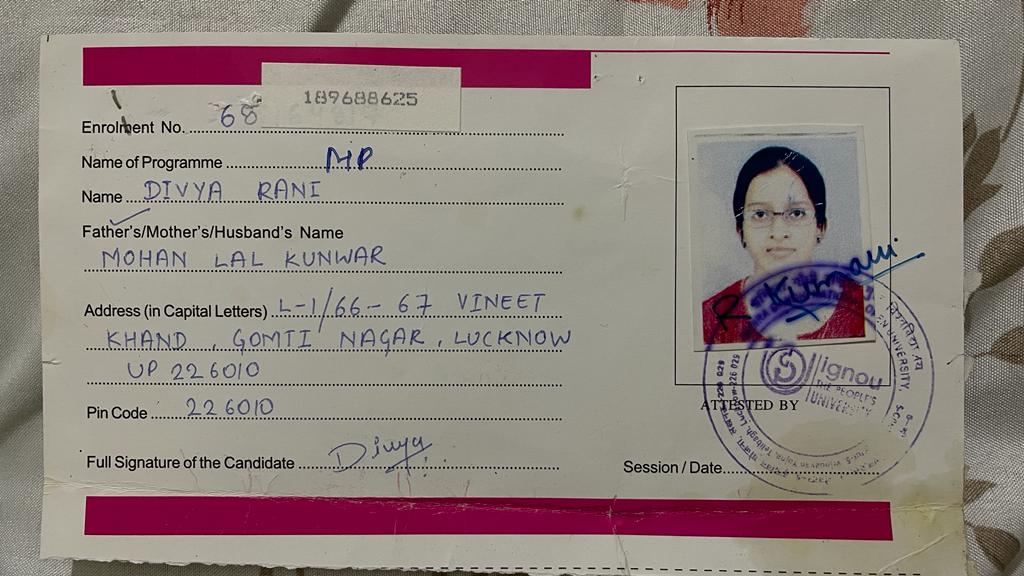 189688625
Enrolment No. 68
Name of Programme MP
Name DIVYA RANI
Father's/Mother's/Husband's Name
MOHAN LAL KUNWAR
Address (in Capital Letters) L-1/66-67 VINEET
KHAND, GOMTI NAGAR, LUCKNOW
UP 226010
Pin Code 226010
Full Signature of the Candidate Divya
ignou
THE PEOPLE'S
UNIVERSITY
ATTESTED BY
Session / Date